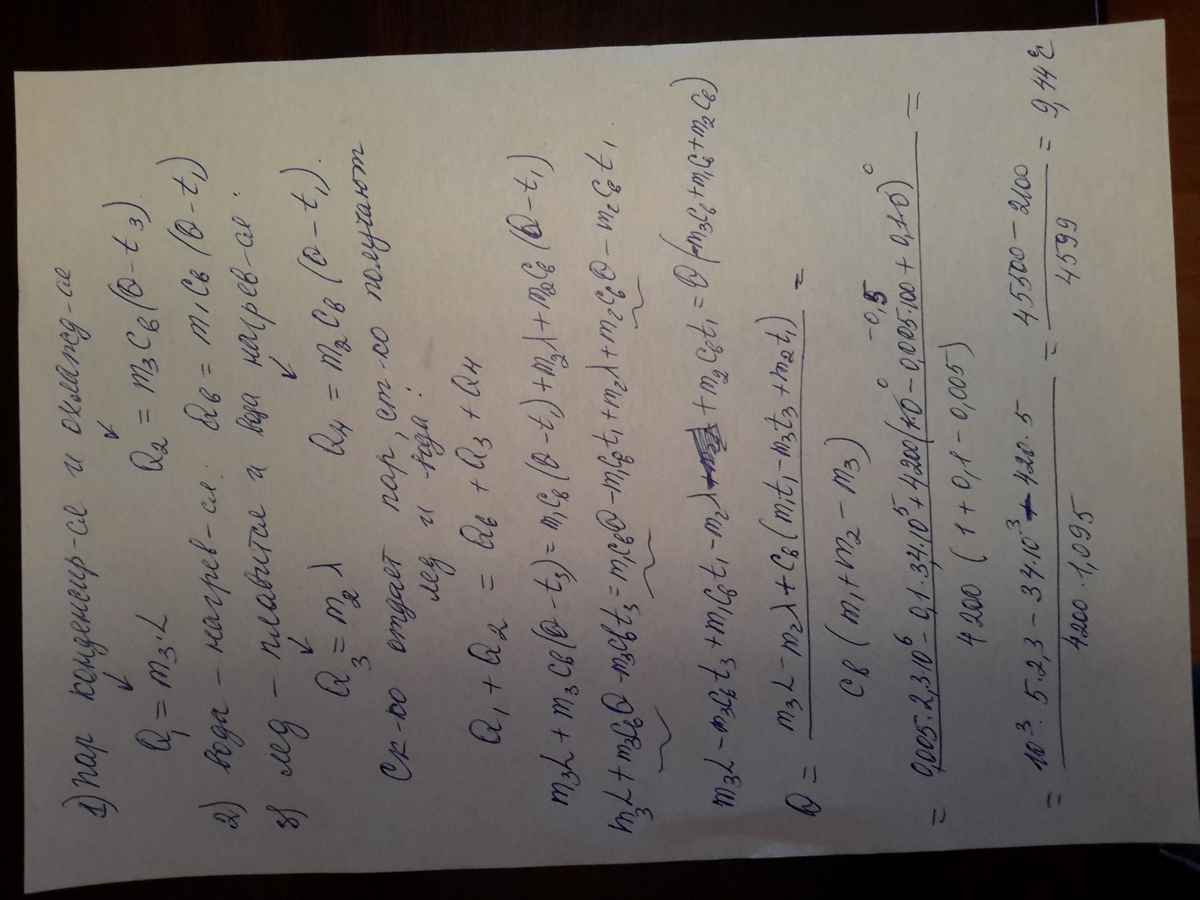 1) пар конденсир-ся и охлажд-ся
Q₁ = m₃·L Q₂ = m₃Cв(θ-t₃)
2) вода – нагрев-ся: Qв = m₁Cв(θ-t₁)
3) лёд – плавится и вода нагрев-ся:
Q₃ = m₂λ Q₄ = m₂Cв(θ-t₁).
Ск-ко отдает пар, ст-ко получают
лед и вода:
Q₁ + Q₂ = Qв + Q₃ + Q₄
m₃L + m₃Cв(θ-t₃) = m₁Cв(θ-t₁) + m₂λ + m₂Cв(θ-t₁)
m₃L + m₃Cвθ - m₃Cвt₃ = m₁Cвθ - m₁Cвt₁ + m₂λ + m₂Cвθ - m₂Cвt₁.
m₃L - m₃Cвt₃ + m₁Cвt₁ - m₂λ + m₂Cвt₁ = θ(-m₃Cв + m₁Cв + m₂Cв)
θ = (m₃L - m₂λ + Cв(m₁t₁ - m₃t₃ + m₂t₁)) / (Cв(m₁ + m₂ - m₃)) =
= (0,005·2,3·10⁶ - 0,1·3,4·10⁵ + 4200(1·0 - 0,005·100 + 0,1·0)) / (4200(1 + 0,1 - 0,005)) =
= (10³·5·2,3 - 34·10³ + 420·5) / (4200·1,095) = (45500 - 2100) / 4599 = 9,44